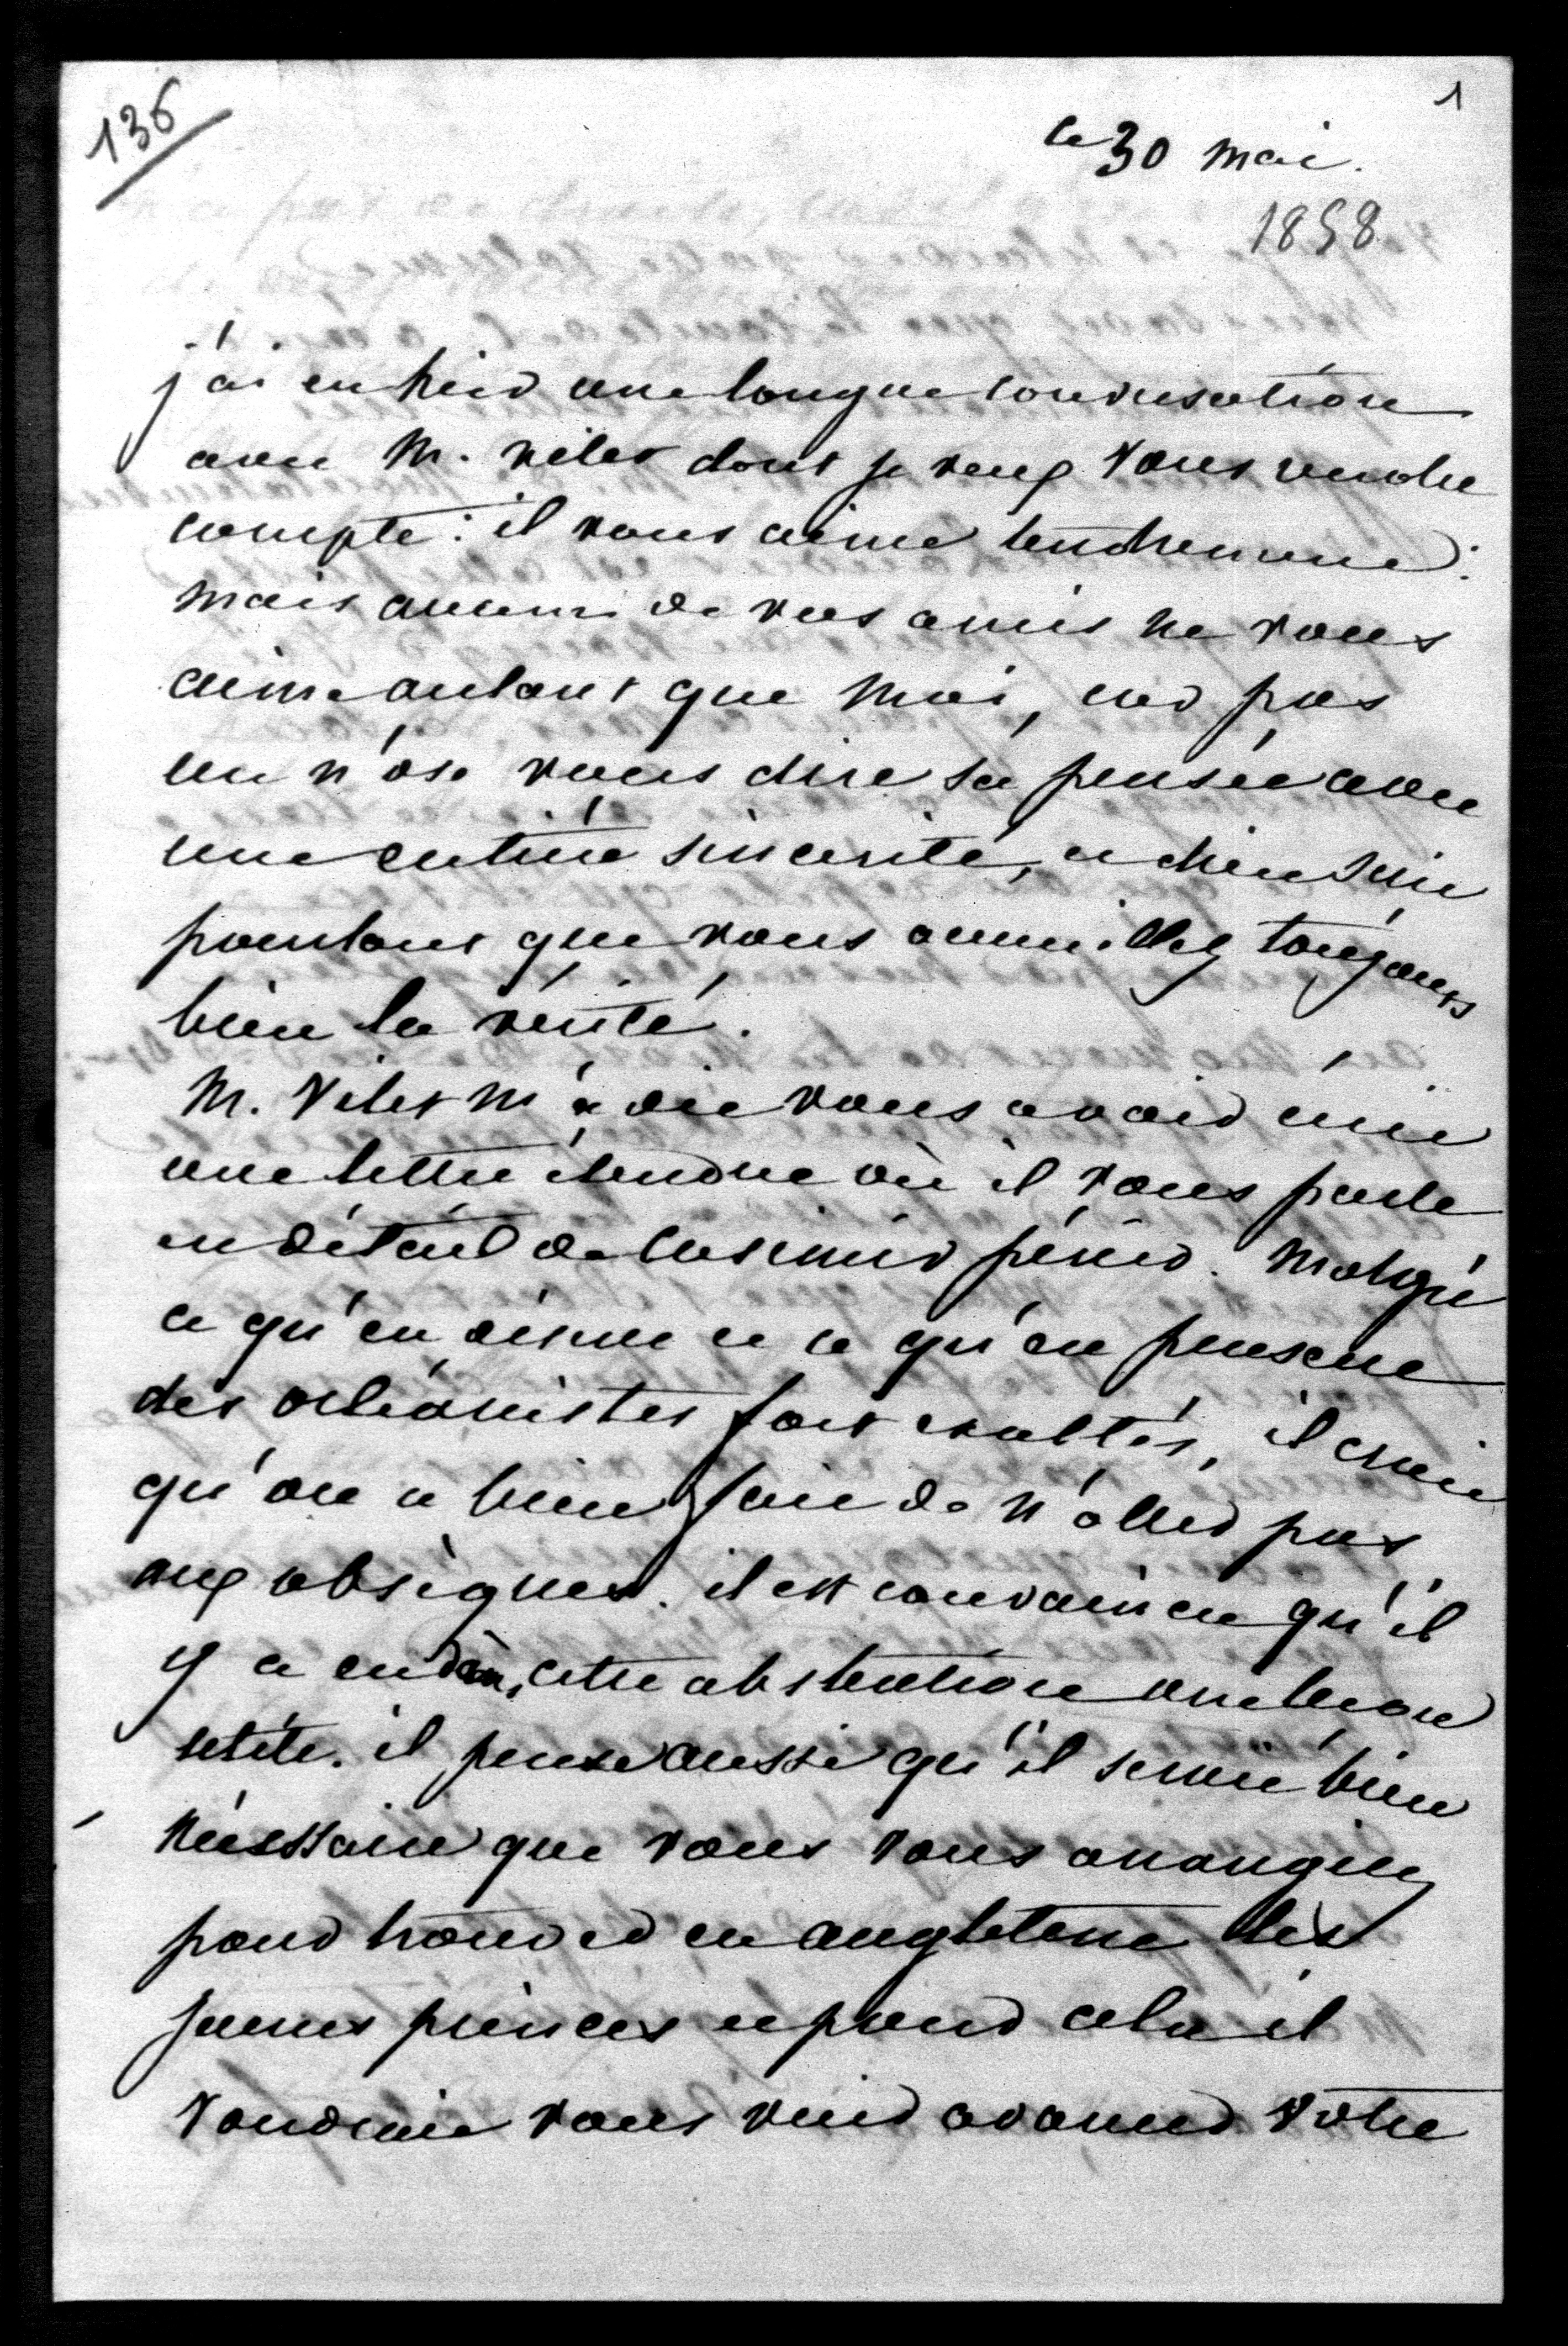 136
1
ce 30 mai.
1858
j'ai eu hier une longue conversation
avec M. Vitet dont je veux vous rendre
compte : il vous aime tendrement :
mais aucun de vos amis ne vous
aime autant que moi, car pas
un n'ose vous dire sa pensée avec
une entière sincérité, et dieu sait
pourtant que vous accueillez toujours
bien la vérité.
M. Vitet m'a dit vous avoir écrit
une lettre étendue où il vous parle
en détail de Casimir périer. Malgré
ce qu'en disent et ce qu'en pensent
des orléanistes fort exaltés, il croit
qu'on a bien fait de n'aller pas
aux obsèques. il est convaincu qu'il
y a eu dans cette abstention une bonne
il pense aussi qu'il serait bien
nécessaire que vous vous arrangiez
pour trouver en angleterre les
jeunes princes et pour cela il
voudrait vous voir avancer votre